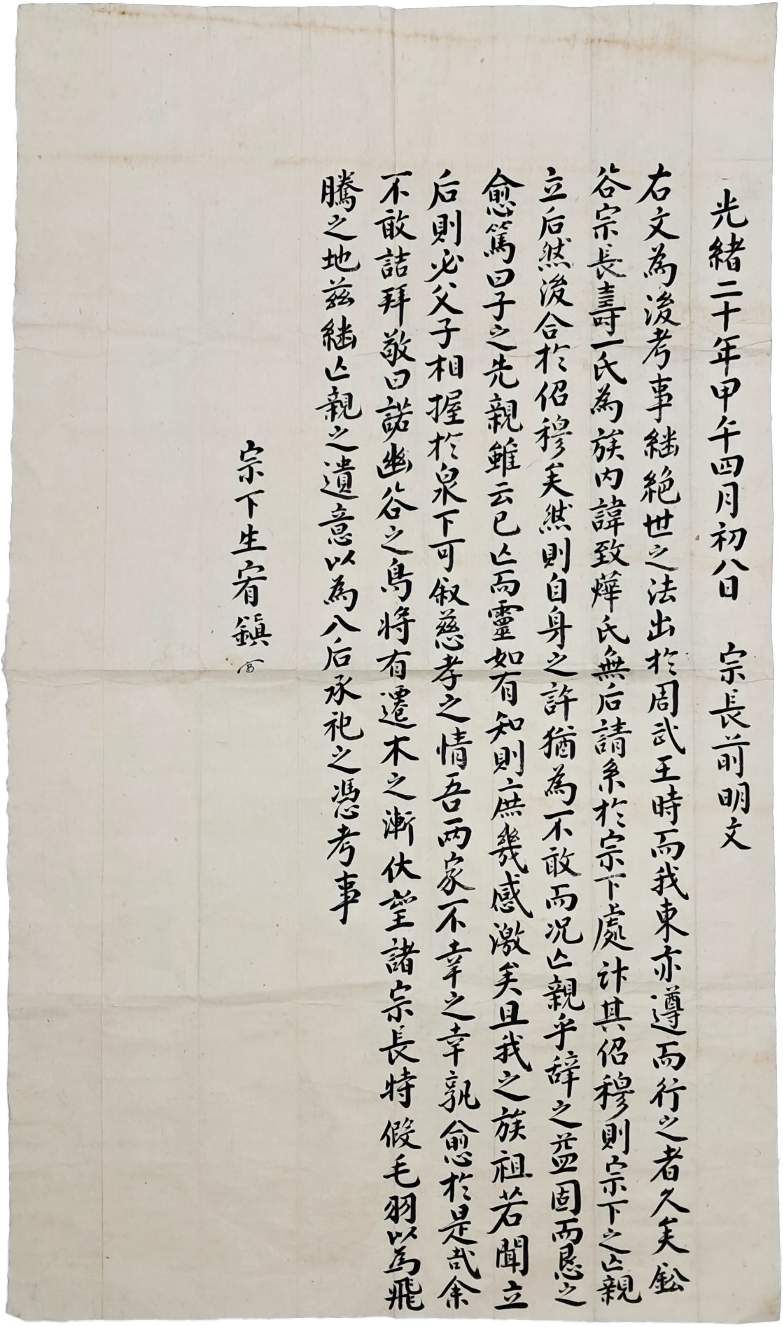 光緒二十年甲午四月初八日　宗長前明文
右文為後考事継絶世之法出於周武王時而我東亦遵而行之者久矣鈆
谷宗長壽一氏為族内諱致燁氏無后請系於宗下處計其佋穆則宗下之亡親
立后然後合於佋穆矣然則自身之許猶為不敢而况亡親乎辞之益固而恳之
愈篤曰子之先親雖云已亡而靈如有知則庶幾感激矣且我之族祖若聞立
后則必父子相握於泉下可叙慈孝之情吾兩家不幸之幸孰愈於是哉余
不敢詰拜敬曰諾幽谷之鳥将有遷木之漸伏望諸宗長特假毛羽以為飛
騰之地茲継亡親之遺意以為入后承祀之憑考事
宗下生宥鎮